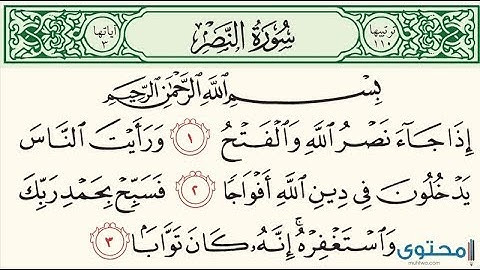 ترتيبها ١١٠
سُورَةُ النَّصْرِ
آياتها ٣
بِسْمِ اللَّهِ الرَّحْمَٰنِ الرَّحِيمِ
إِذَا جَآءَ نَصْرُ اللَّهِ وَالْفَتْحُ ١ وَرَأَيْتَ النَّاسَ
يَدْخُلُونَ فِي دِينِ اللَّهِ أَفْوَاجًا ٢ فَسَبِّحْ بِحَمْدِ رَبِّكَ
وَاسْتَغْفِرْهُ ۚ إِنَّهُۥ كَانَ تَوَّابًۢا ٣
محتوى
muhtwa.com